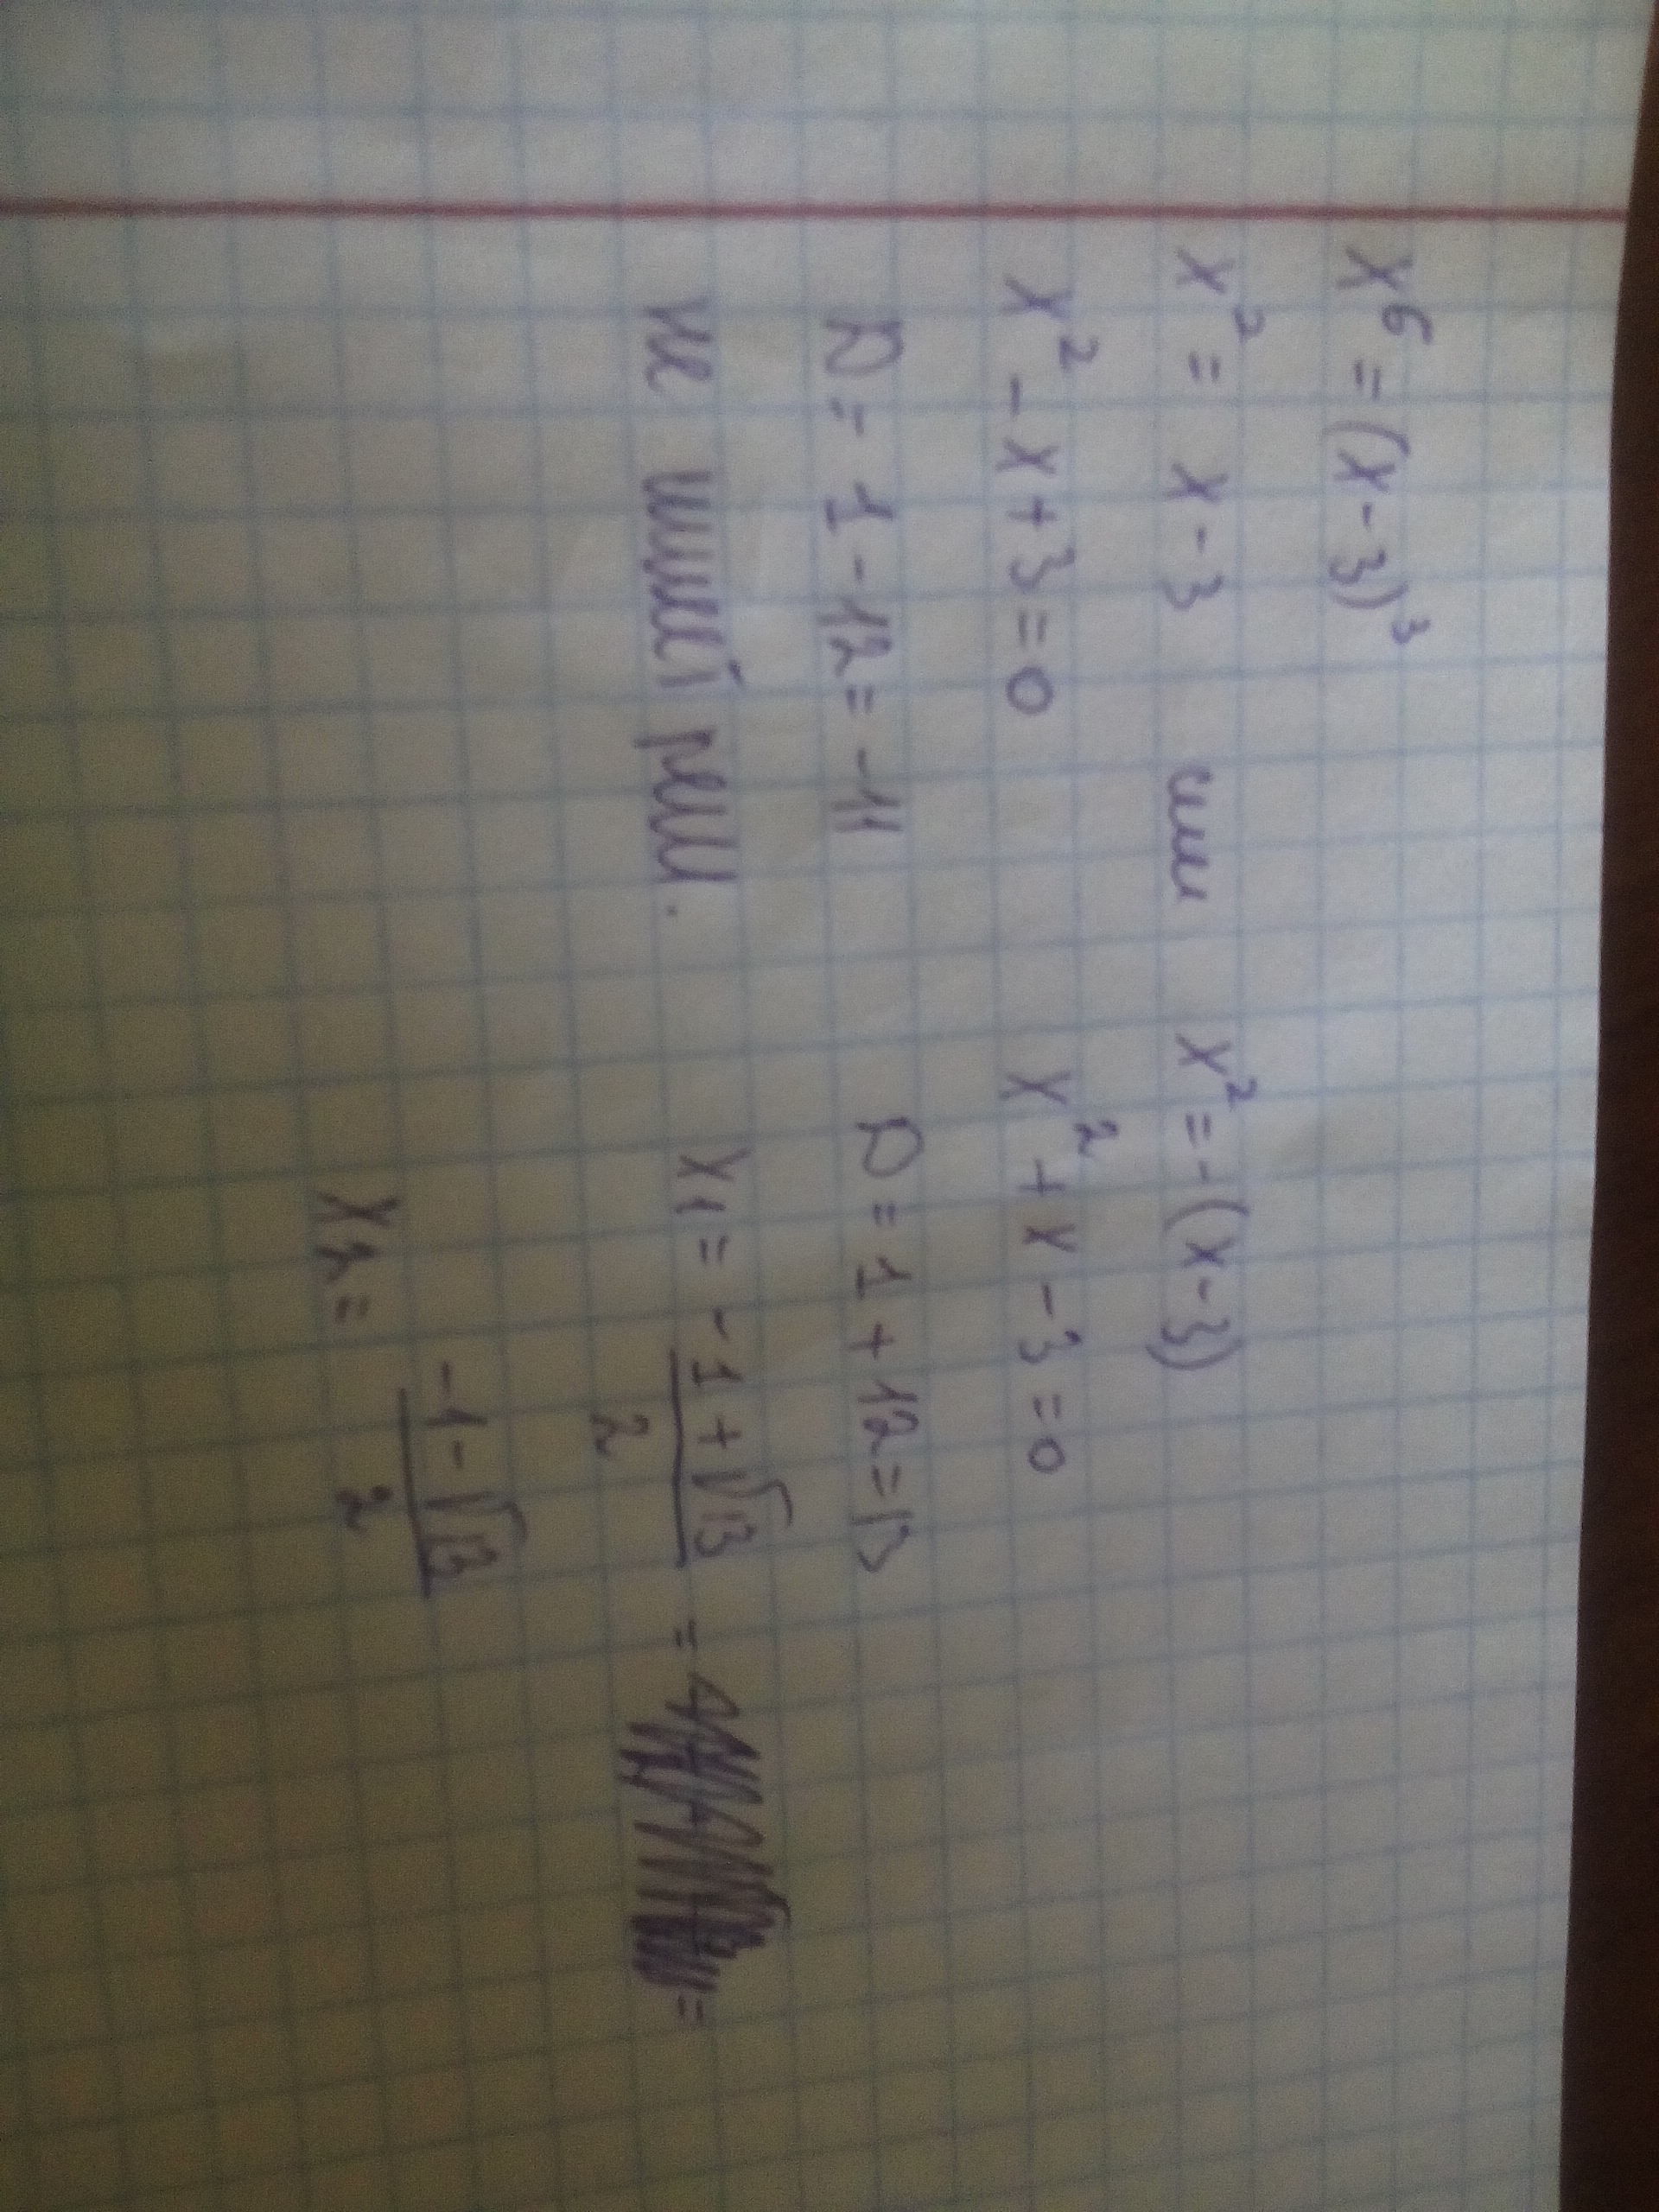 x⁶ = (x - 3)³
x² = x - 3 или x² = - (x - 3)
x² - x + 3 = 0 x² + x - 3 = 0
D = 1 - 12 = -11 D = 1 + 12 = 13
не имеет реш. x₁ = (-1 + √13)/2 = =
x₂ = (-1 - √13)/2